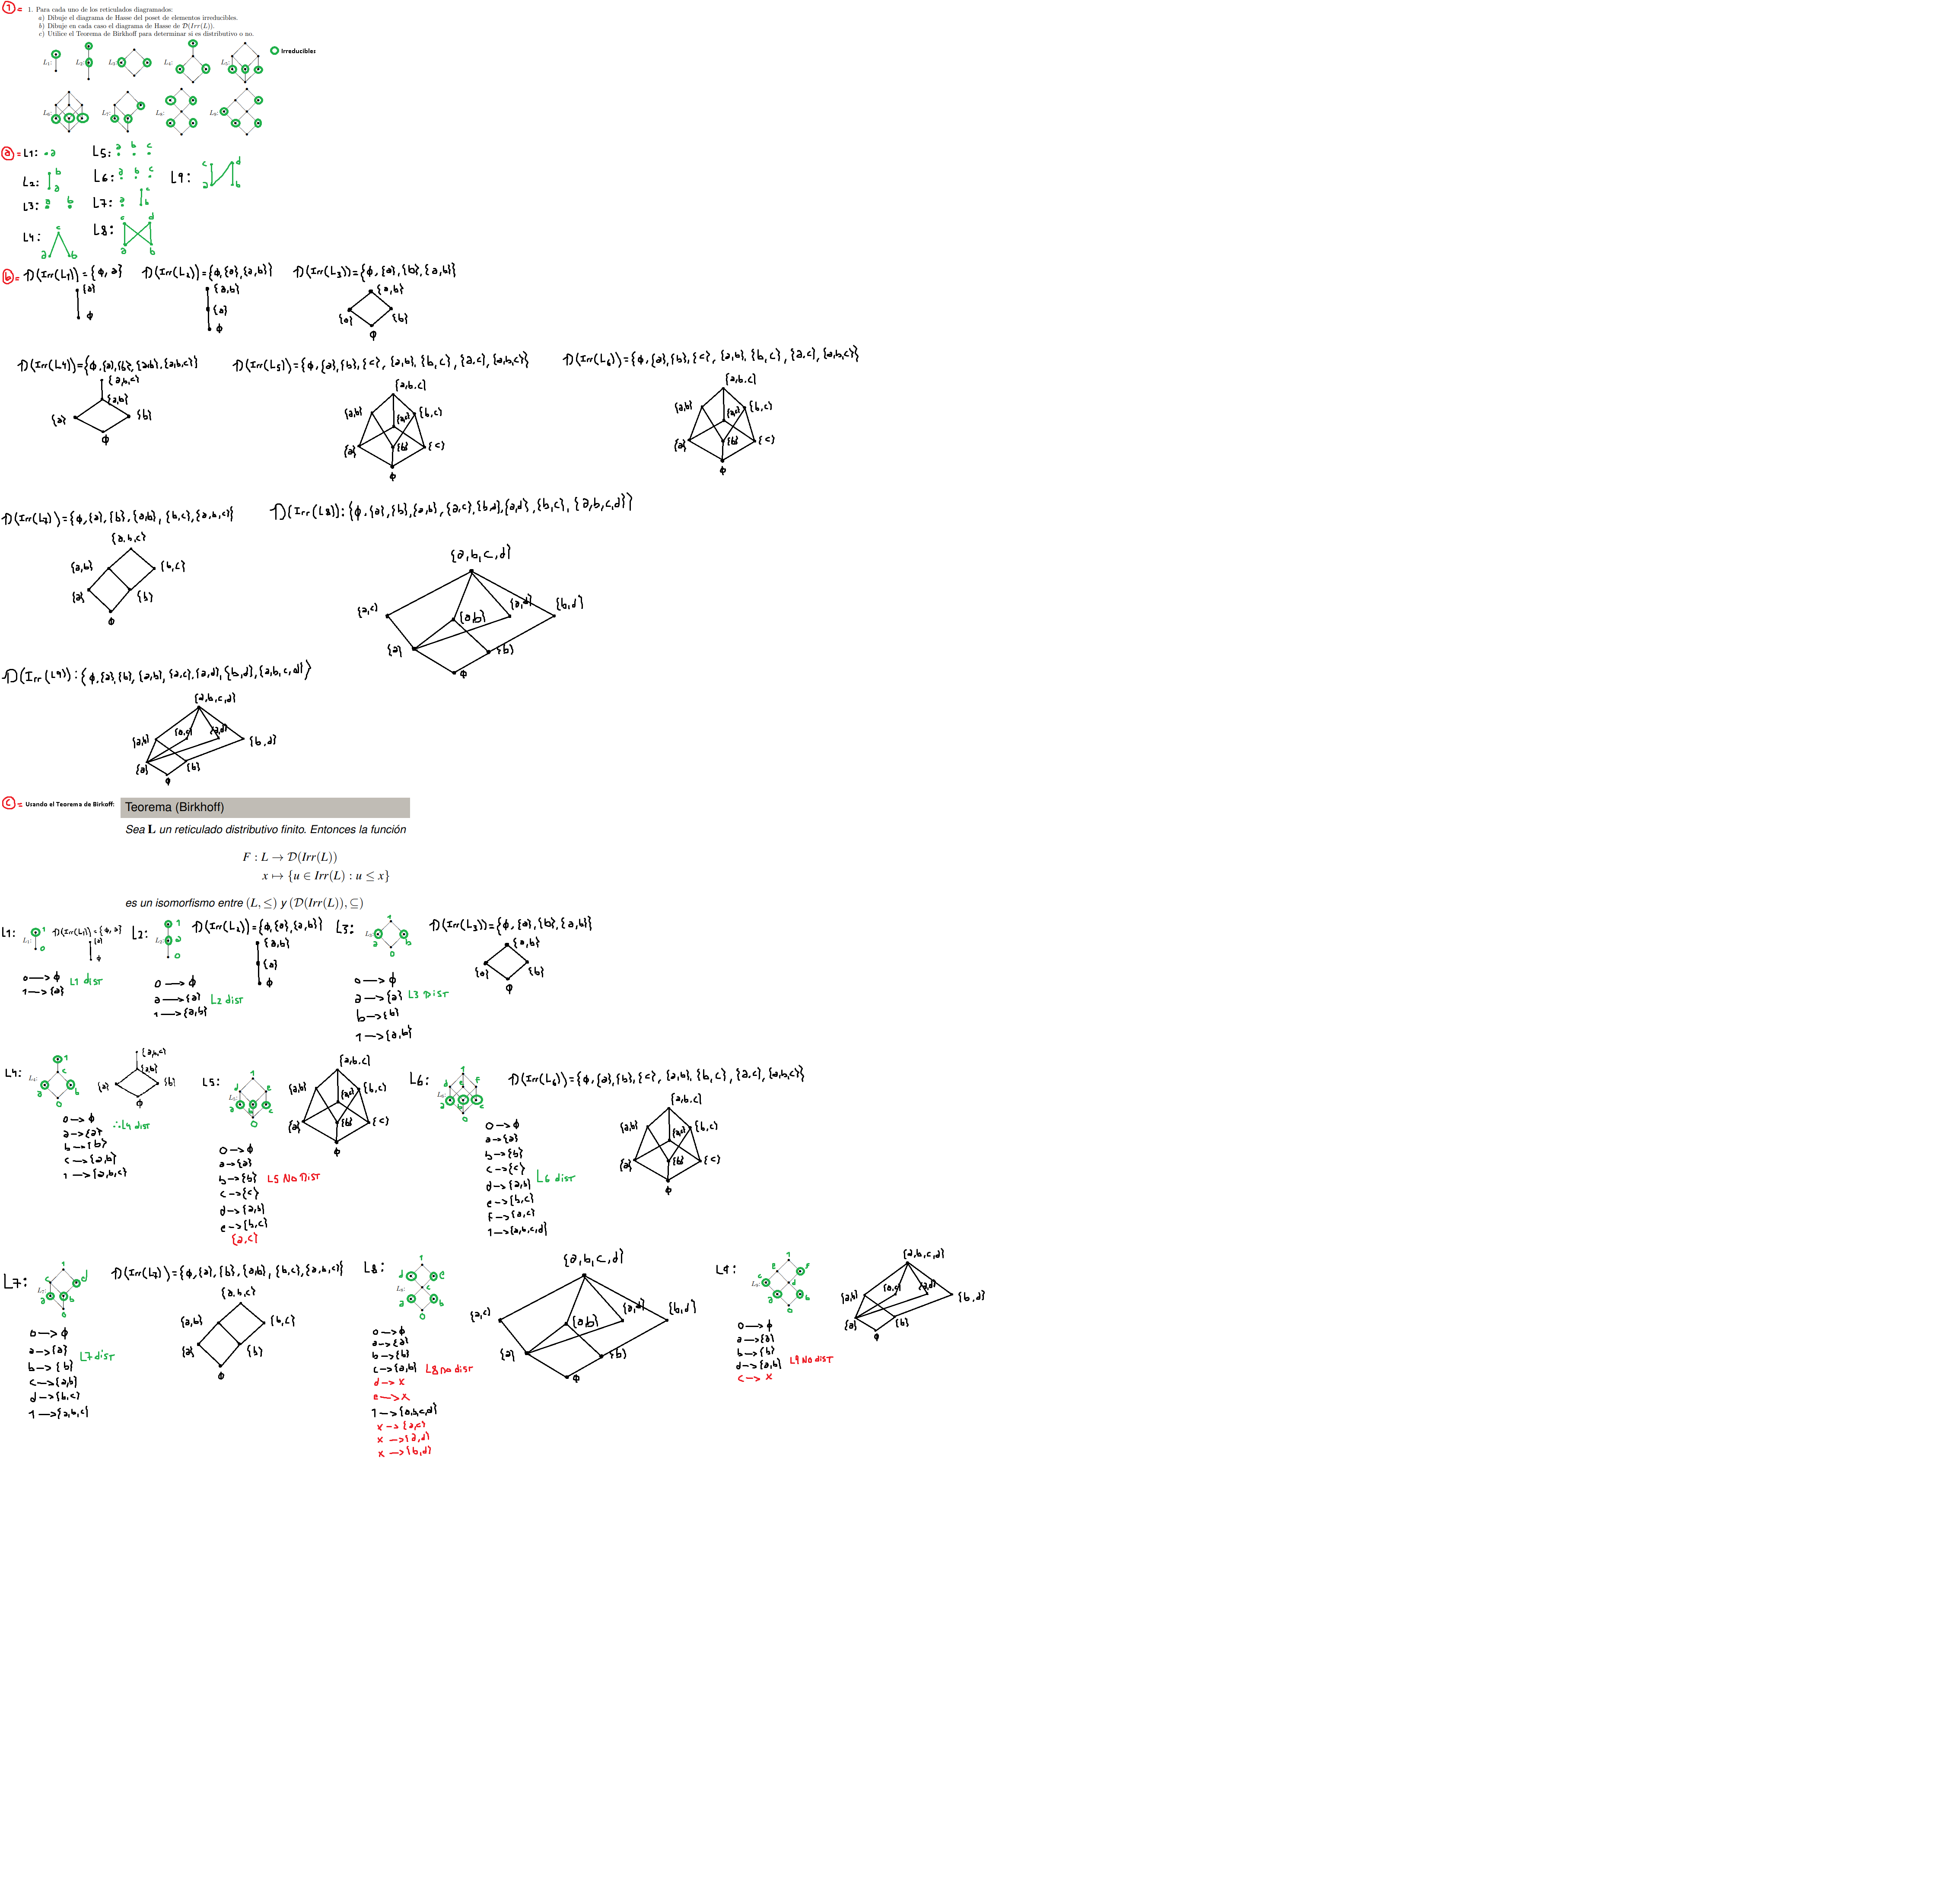 1 = 1. Para cada uno de los reticulados diagramados:
a) Dibuje el diagrama de Hasse del poset de elementos irreducibles.
b) Dibuje en cada caso el diagrama de Hasse de D(Irr(L)).
c) Utilice el Teorema de Birkhoff para determinar si es distributivo o no.
Irreducibles
L₁: L₂: L₃: L₄: L₅:
L₆: L₇: L₈: L₉:
a = L1: a
L2: b a
L3: a b
L4: c a b
L5: a b c
L6: a b c
L7: a c b
L8: c d a b
L9: c d a b
b = D(Irr(L1)) = {ϕ, a}
{a}
ϕ
D(Irr(L2)) = {ϕ, {a}, {a,b}}
{a,b}
{a}
ϕ
D(Irr(L3)) = {ϕ, {a}, {b}, {a,b}}
{a,b}
{a} {b}
ϕ
D(Irr(L4)) = {ϕ, {a}, {b}, {a,b}, {a,b,c}}
{a,b,c}
{a,b}
{a} {b}
ϕ
D(Irr(L5)) = {ϕ, {a}, {b}, {c}, {a,b}, {b,c}, {a,c}, {a,b,c}}
{a,b,c}
{a,b} {a,c} {b,c}
{a} {b} {c}
ϕ
D(Irr(L6)) = {ϕ, {a}, {b}, {c}, {a,b}, {b,c}, {a,c}, {a,b,c}}
{a,b,c}
{a,b} {a,c} {b,c}
{a} {b} {c}
ϕ
D(Irr(L7)) = {ϕ, {a}, {b}, {a,b}, {b,c}, {a,b,c}}
{a,b,c}
{a,b} {b,c}
{a} {b}
ϕ
D(Irr(L8)): {ϕ, {a}, {b}, {a,b}, {a,c}, {b,d}, {a,d}, {b,c}, {a,b,c,d}}
{a,b,c,d}
{a,c} {a,b} {a,d} {b,d}
{a} {b}
ϕ
D(Irr(L9)): {ϕ, {a}, {b}, {a,b}, {a,c}, {a,d}, {b,d}, {a,b,c,d}}
{a,b,c,d}
{a,b} {a,c} {a,d} {b,d}
{a} {b}
ϕ
c = Usando el Teorema de Birkoff:
Teorema (Birkhoff)
Sea L un reticulado distributivo finito. Entonces la función
F : L → D(Irr(L))
x ↦ {u ∈ Irr(L) : u ≤ x}
es un isomorfismo entre (L, ≤) y (D(Irr(L)), ⊆)
L1: L₁: 1 0
D(Irr(L1)) = {ϕ, a}
{a}
ϕ
0 → ϕ
1 → {a}
L1 dist
L2: L₂: 1 a 0
D(Irr(L2)) = {ϕ, {a}, {a,b}}
{a,b}
{a}
ϕ
0 → ϕ
a → {a}
1 → {a,b}
L2 dist
L3: L₃: 1 a b 0
D(Irr(L3)) = {ϕ, {a}, {b}, {a,b}}
{a,b}
{a} {b}
ϕ
0 → ϕ
a → {a}
b → {b}
1 → {a,b}
L3 Dist
L4: L₄: 1 c a b 0
{a,b,c}
{a,b}
{a} {b}
ϕ
0 → ϕ
a → {a}
b → {b}
c → {a,b}
1 → {a,b,c}
∴ L4 dist
L5: L₅: 1 d e a b c 0
{a,b,c}
{a,b} {a,c} {b,c}
{a} {b} {c}
ϕ
0 → ϕ
a → {a}
b → {b}
c → {c}
d → {a,b}
e → {b,c}
{a,c}
L5 No Dist
L6: L₆: 1 d e F a b c 0
D(Irr(L6)) = {ϕ, {a}, {b}, {c}, {a,b}, {b,c}, {a,c}, {a,b,c}}
{a,b,c}
{a,b} {a,c} {b,c}
{a} {b} {c}
ϕ
0 → ϕ
a → {a}
b → {b}
c → {c}
d → {a,b}
e → {b,c}
F → {a,c}
1 → {a,b,c,d}
L6 dist
L7: L₇: 1 c d a b 0
D(Irr(L7)) = {ϕ, {a}, {b}, {a,b}, {b,c}, {a,b,c}}
{a,b,c}
{a,b} {b,c}
{a} {b}
ϕ
0 → ϕ
a → {a}
b → {b}
c → {a,b}
d → {b,c}
1 → {a,b,c}
L7 dist
L8: L₈: 1 d e c a b 0
{a,b,c,d}
{a,c} {a,b} {a,d} {b,d}
{a} {b}
ϕ
0 → ϕ
a → {a}
b → {b}
c → {a,b}
d → x
e → x
1 → {a,b,c,d}
x → {a,c}
x → {a,d}
x → {b,d}
L8 no dist
L9: L₉: 1 e F c d a b 0
{a,b,c,d}
{a,b} {a,c} {a,d} {b,d}
{a} {b}
ϕ
0 → ϕ
a → {a}
b → {b}
d → {a,b}
c → x
L9 No dist